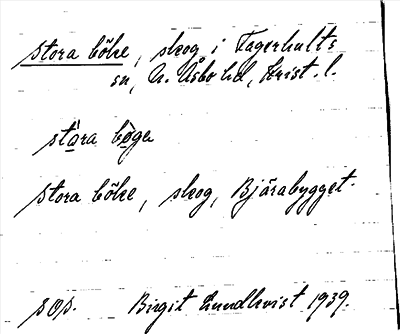 stora böke, skog i Fagerhults
sn, N. Åsbo hd, Krist. l.
stāra bøge
stora böke, skog, Bjärabygget.
sOp. Birgit Lundkvist 1939.